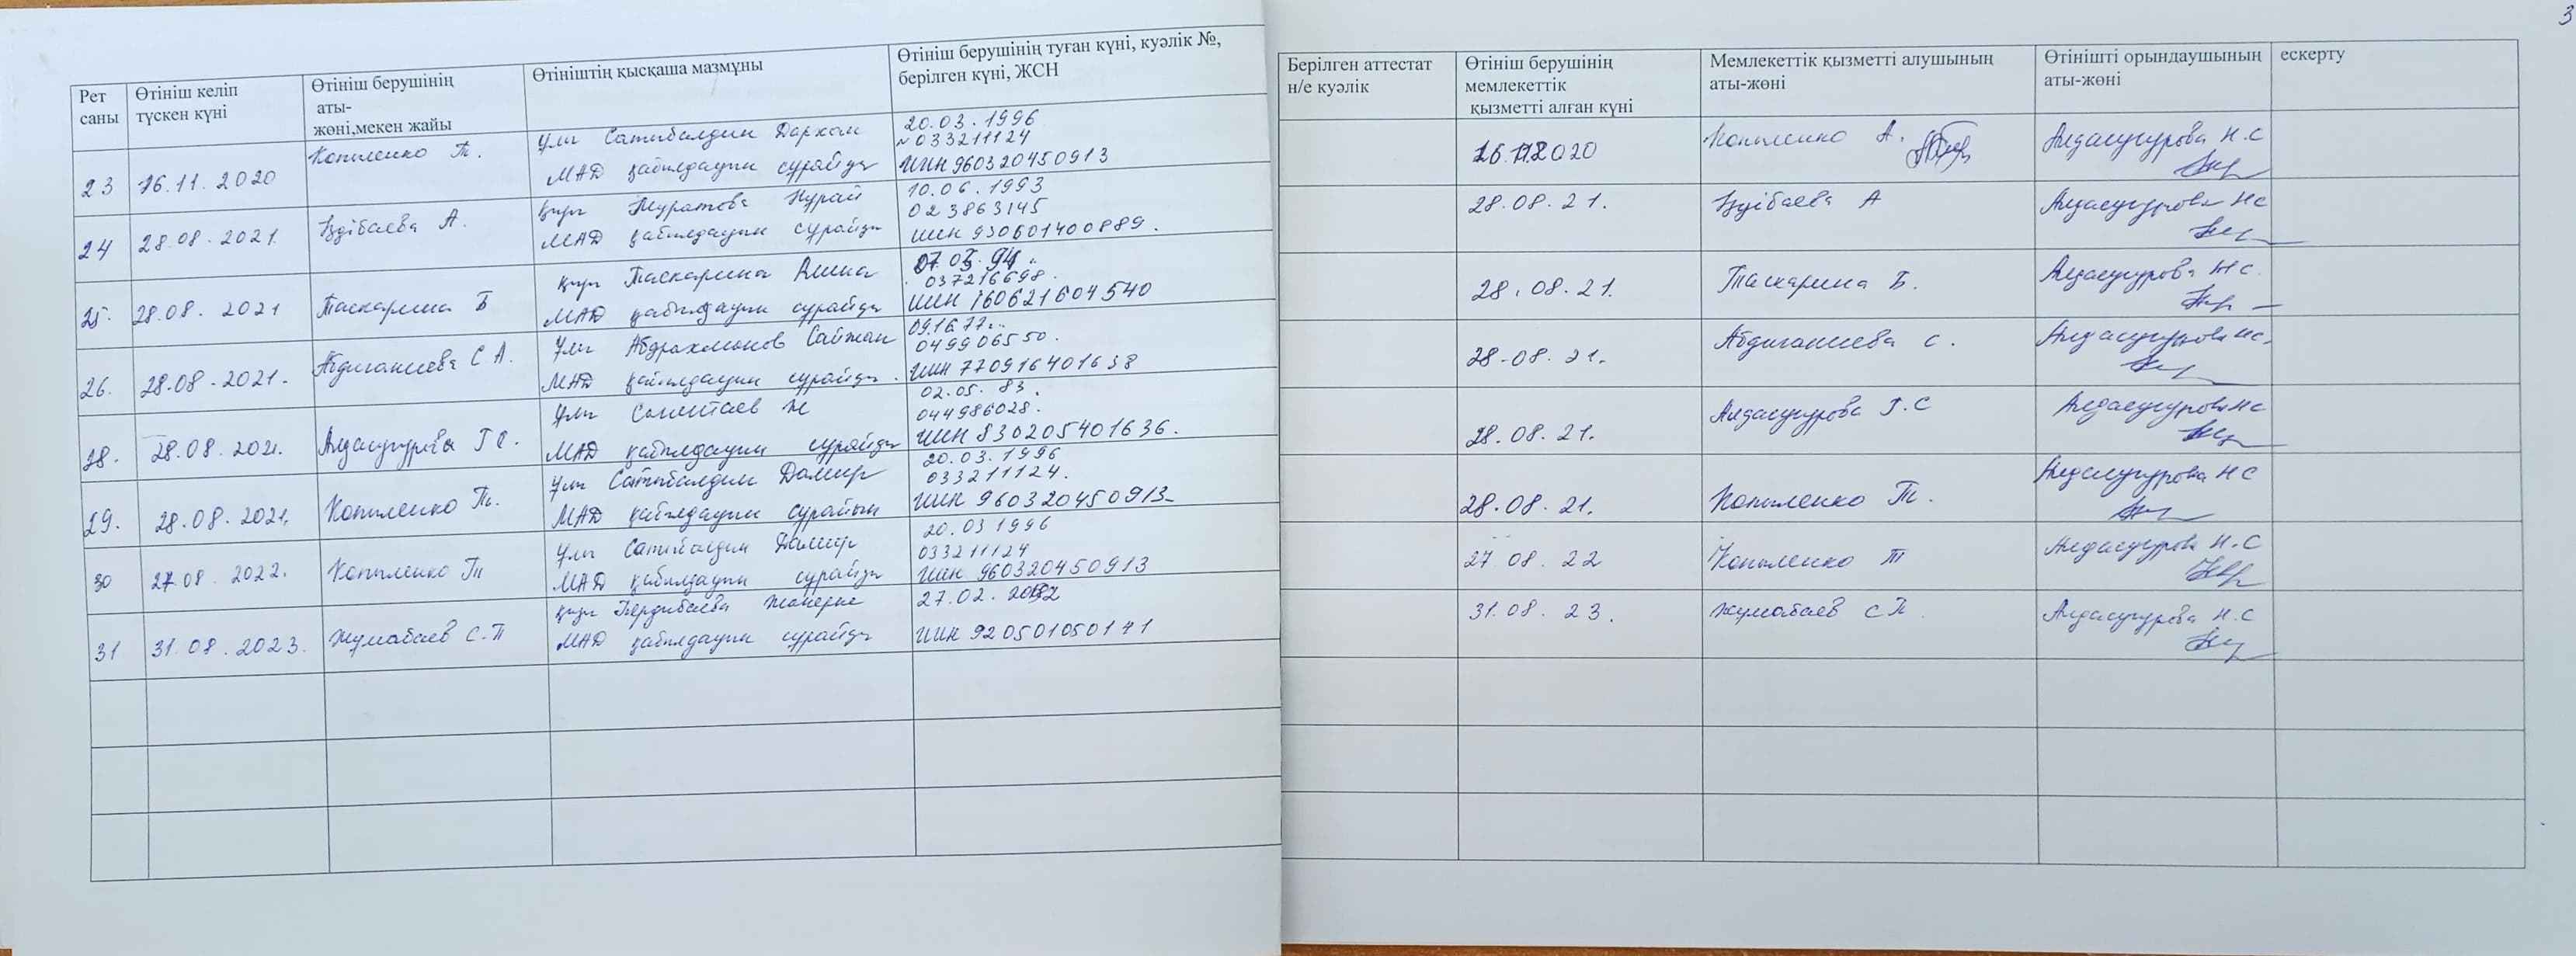 3
Рет
саны
Өтініш келіп
түскен күні
Өтініш берушінің
аты-
жөні,мекен жайы
Өтініштің қысқаша мазмұны
Өтініш берушінің туған күні, куәлік №,
берілген күні, ЖСН
Берілген аттестат
н/е куәлік
Өтініш берушінің
мемлекеттік
қызметті алған күні
Мемлекеттік қызметті алушының
аты-жөні
Өтінішті орындаушының
аты-жөні
ескерту
23
16.11.2020
Копиленко Т.
Ұлы Сатыбалдин Дархан
МАД қабылдауын сұрайды
20.03.1996
№033211124
ИИН 960320450913
2020
Копиленко А.
Алдасугурова Н.С
24
28.08.2021.
Іздібаева А.
Қызы Муратова Нұрай
МАД қабылдауын сұрайды
10.06.1993
023863145
ИИН 930601400889.
28.08.21.
Іздібаева А
Алдасугурова НС
25.
28.08.2021
Таскарина Б
Қызы Таскарина
МАД қабылдауын сұрайды
037216698.
ИИН 160621604540
28.08.21.
Таскарина Б.
Алдасугурова Н С.
26.
28.08.2021.
Абдиганиева С А.
Ұлы Абдрахманов
МАД қабылдауын сұрайды.
09.16.77
049906550.
ИИН 770916401638
28.08.21.
Абдиганиева С.
Алдасугурова НС.
28.
28.08.2021.
Алдасугурова Г С.
Ұлы
МАД қабылдауын сұрайды
02.05.83.
044986028.
ИИН 830205401636.
28.08.21.
Алдасугурова Г.С
Алдасугурова НС
29.
28.08.2021.
Копиленко Т.
Ұлы Сатыбалдин Дамир
МАД қабылдауын сұраймын
20.03.1996
033211124.
ИИН 960320450913
28.08.21.
Копиленко Т.
Алдасугурова Н С
30
27.08.2022.
Копиленко Т
Ұлы Сатыбалдин Дамир
МАД қабылдауын сұрайды
20.03 1996
033211124
ИИН 960320450913
27 08.22
Копиленко Т
Алдасугурова Н.С
31
31.08.2023.
Жумабаев С.Т
Қызы Бердибаева
МАД қабылдауын сұрайды
27.02.
ИИН 920501050141
31.08.23.
Жумабаев С Т
Алдасугурова Н.С